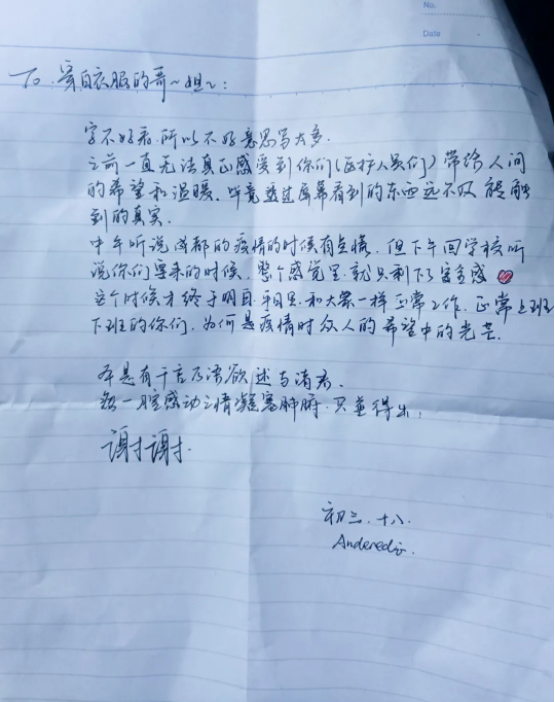 No.
Date
To 穿白衣服的哥~姐~:
字不好看,所以不好意思写太多.
之前一直无法真正感受到你们(医护人员们)带给人间
的希望和温暖,毕竟透过屏幕看到的东西远不及能触
到的真实.
中午听说成都的疫情的时候有点慌,但下午回学校听
说你们要来的时候,整个感觉里就只剩下了安全感
这个时候才终于明白,平日里和大家一样正常工作,正常上班
下班的你们,为何是疫情时众人的希望中的光芒.
本是有千言万语欲述与诸君,
奈一腔感动之情凝塞肺腑,只道得出:
谢谢.
初三.十八.